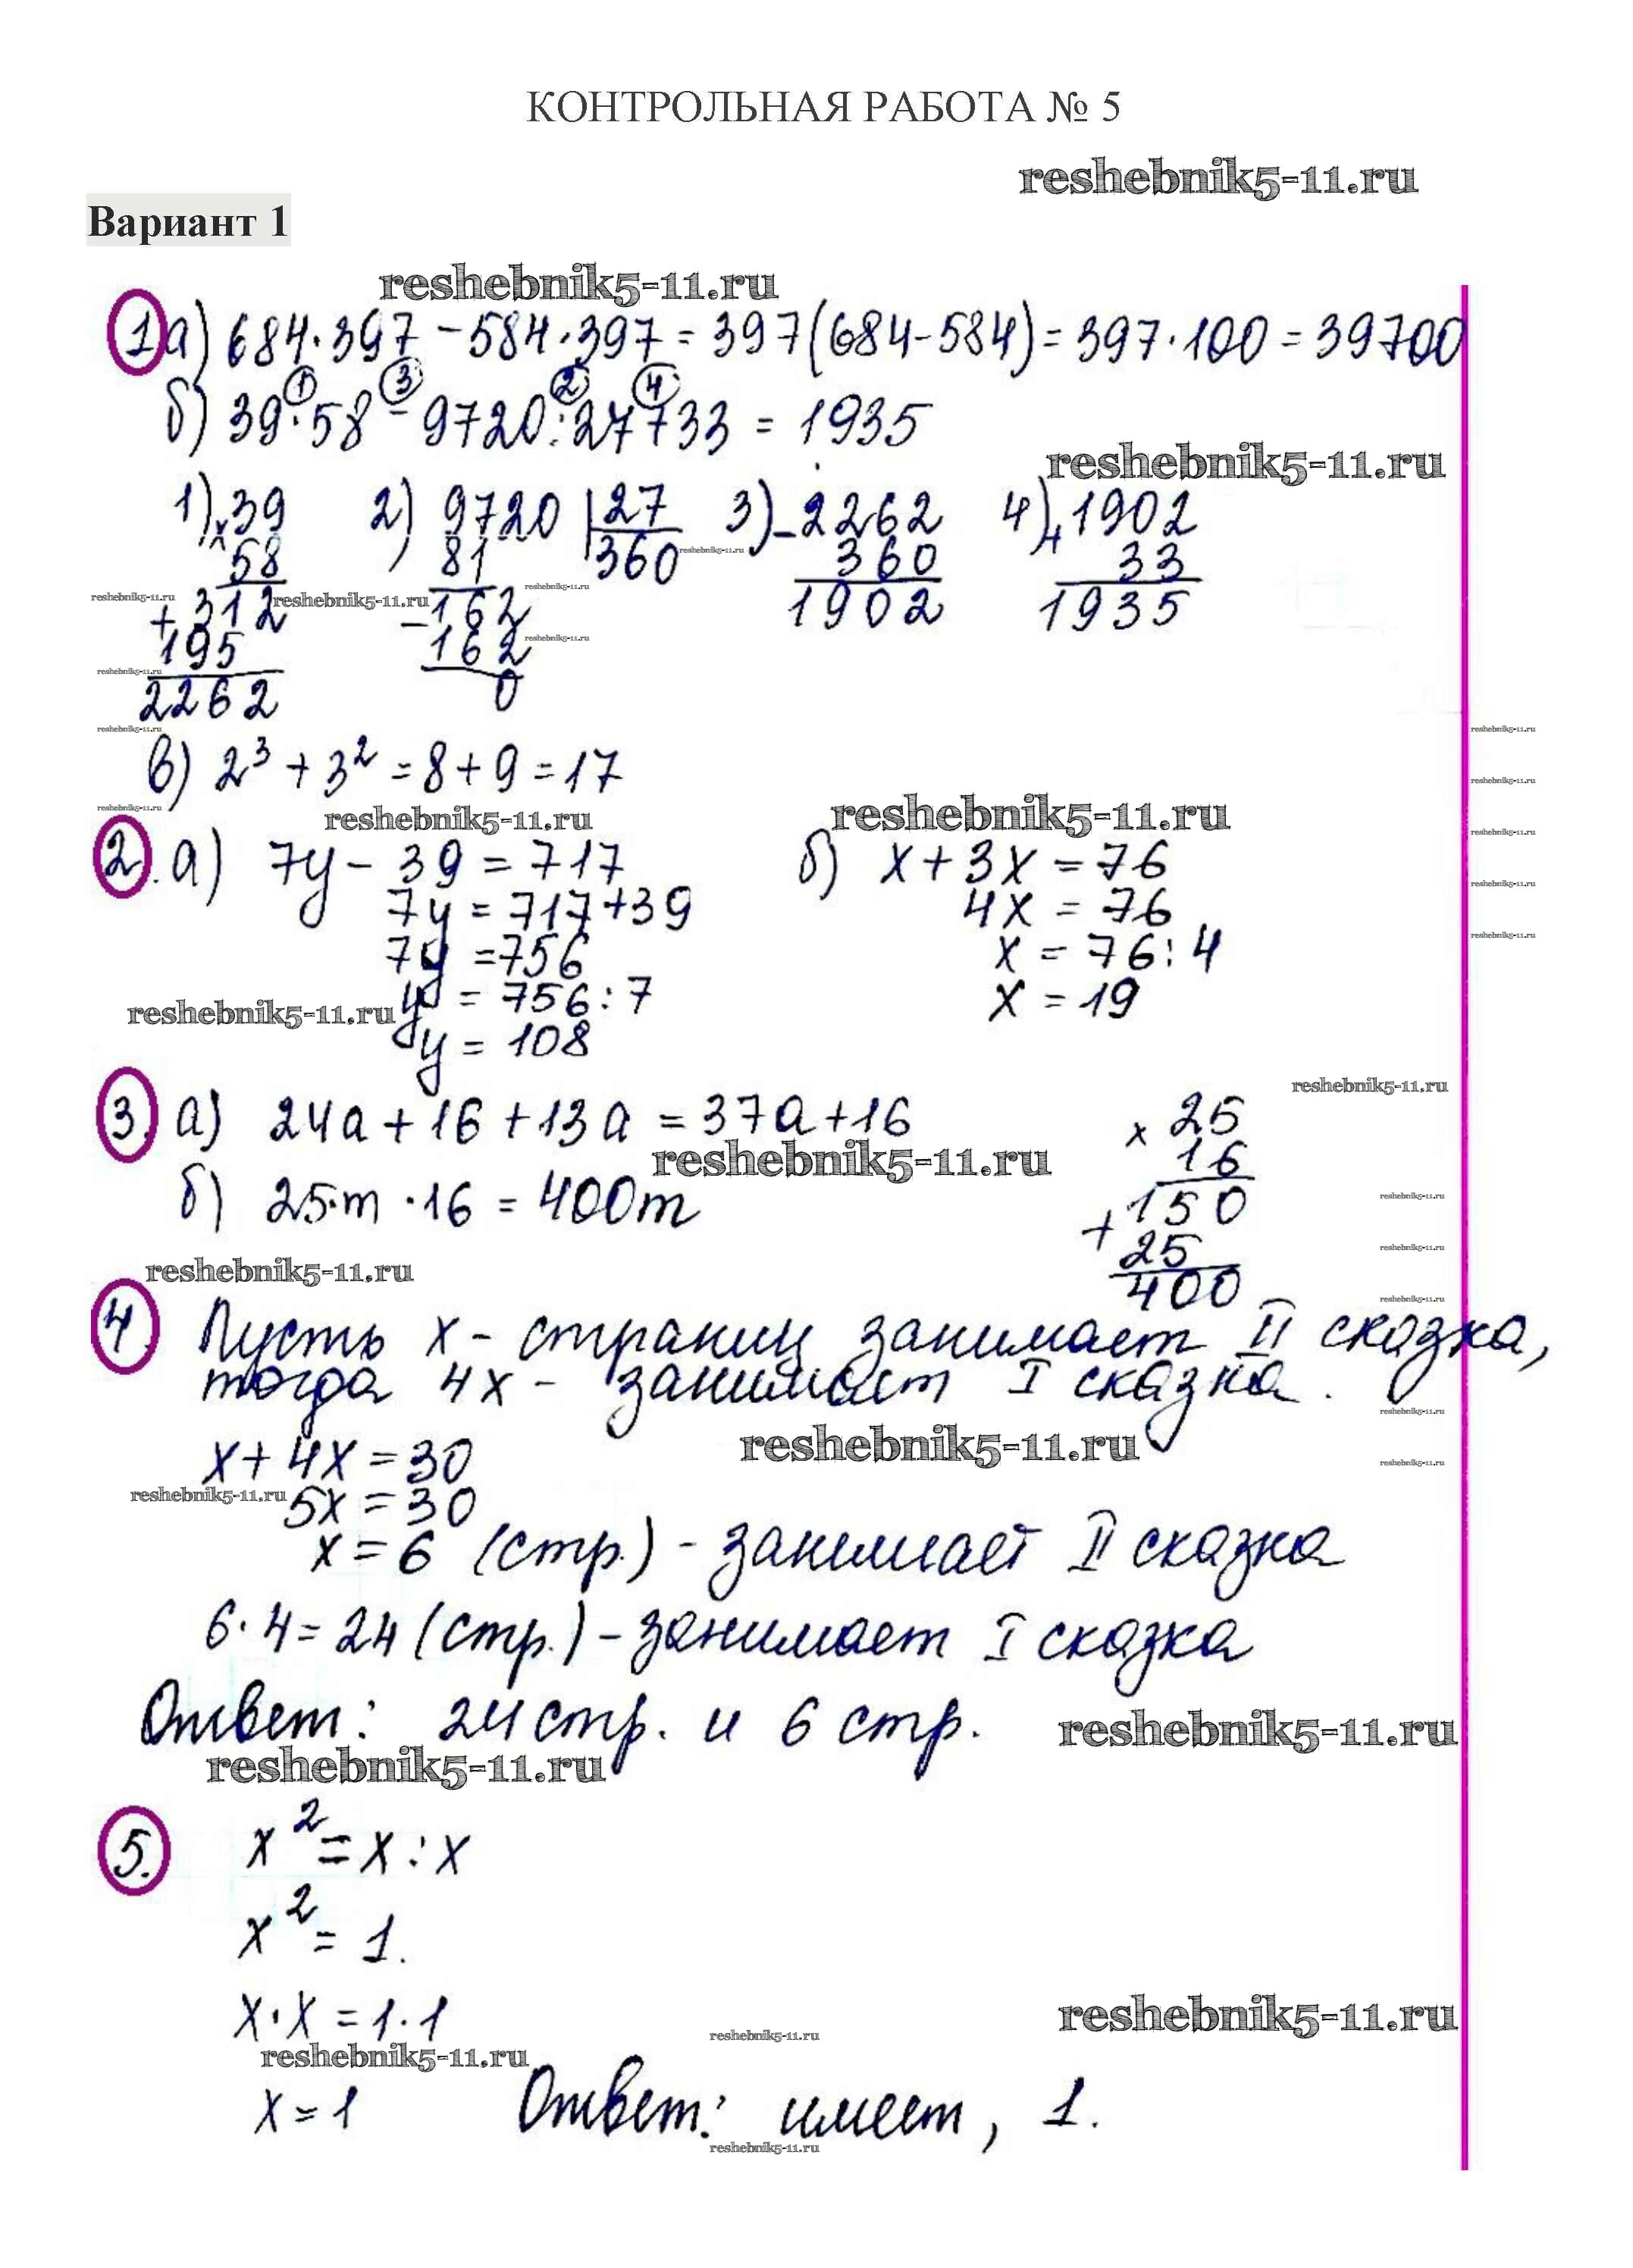 КОНТРОЛЬНАЯ РАБОТА № 5
reshebnik5-11.ru
Вариант 1
reshebnik5-11.ru
1 а) 684·397 - 584·397 = 397(684-584) = 397·100 = 39700
① ③ ② ④
б) 39·58 - 9720:27+33 = 1935
reshebnik5-11.ru
1) 39 2) 9720 27 3) - 2262 4) + 1902
× 58 81 360 reshebnik5-11.ru 360 33
reshebnik5-11.ru + 312 reshebnik5-11.ru - 162 reshebnik5-11.ru 1902 1935
195 162 reshebnik5-11.ru
reshebnik5-11.ru
2262 0
reshebnik5-11.ru reshebnik5-11.ru
в) 2³ + 3² = 8 + 9 = 17
reshebnik5-11.ru
reshebnik5-11.ru
reshebnik5-11.ru reshebnik5-11.ru
reshebnik5-11.ru
2. а) 7y - 39 = 717 б) x + 3x = 76
reshebnik5-11.ru
7y = 717+39 4x = 76
reshebnik5-11.ru
7y = 756 x = 76 : 4
reshebnik5-11.ru y = 756 : 7 x = 19
y = 108
reshebnik5-11.ru
3. а) 24a + 16 + 13a = 37a + 16 × 25
reshebnik5-11.ru 16
б) 25·m ·16 = 400m + 150 reshebnik5-11.ru
25 reshebnik5-11.ru
reshebnik5-11.ru 400 reshebnik5-11.ru
4. Пусть x - страниц занимает II сказка,
тогда 4x - занимает I сказка.
reshebnik5-11.ru
x + 4x = 30 reshebnik5-11.ru reshebnik5-11.ru
reshebnik5-11.ru 5x = 30
x = 6 (стр.) - занимает II сказка
6·4 = 24 (стр.) - занимает I сказка
Ответ: 24 стр. и 6 стр. reshebnik5-11.ru
reshebnik5-11.ru
5. x² = x : x
x² = 1.
x·x = 1·1 reshebnik5-11.ru
reshebnik5-11.ru
reshebnik5-11.ru
x = 1 Ответ: имеет, 1.
reshebnik5-11.ru